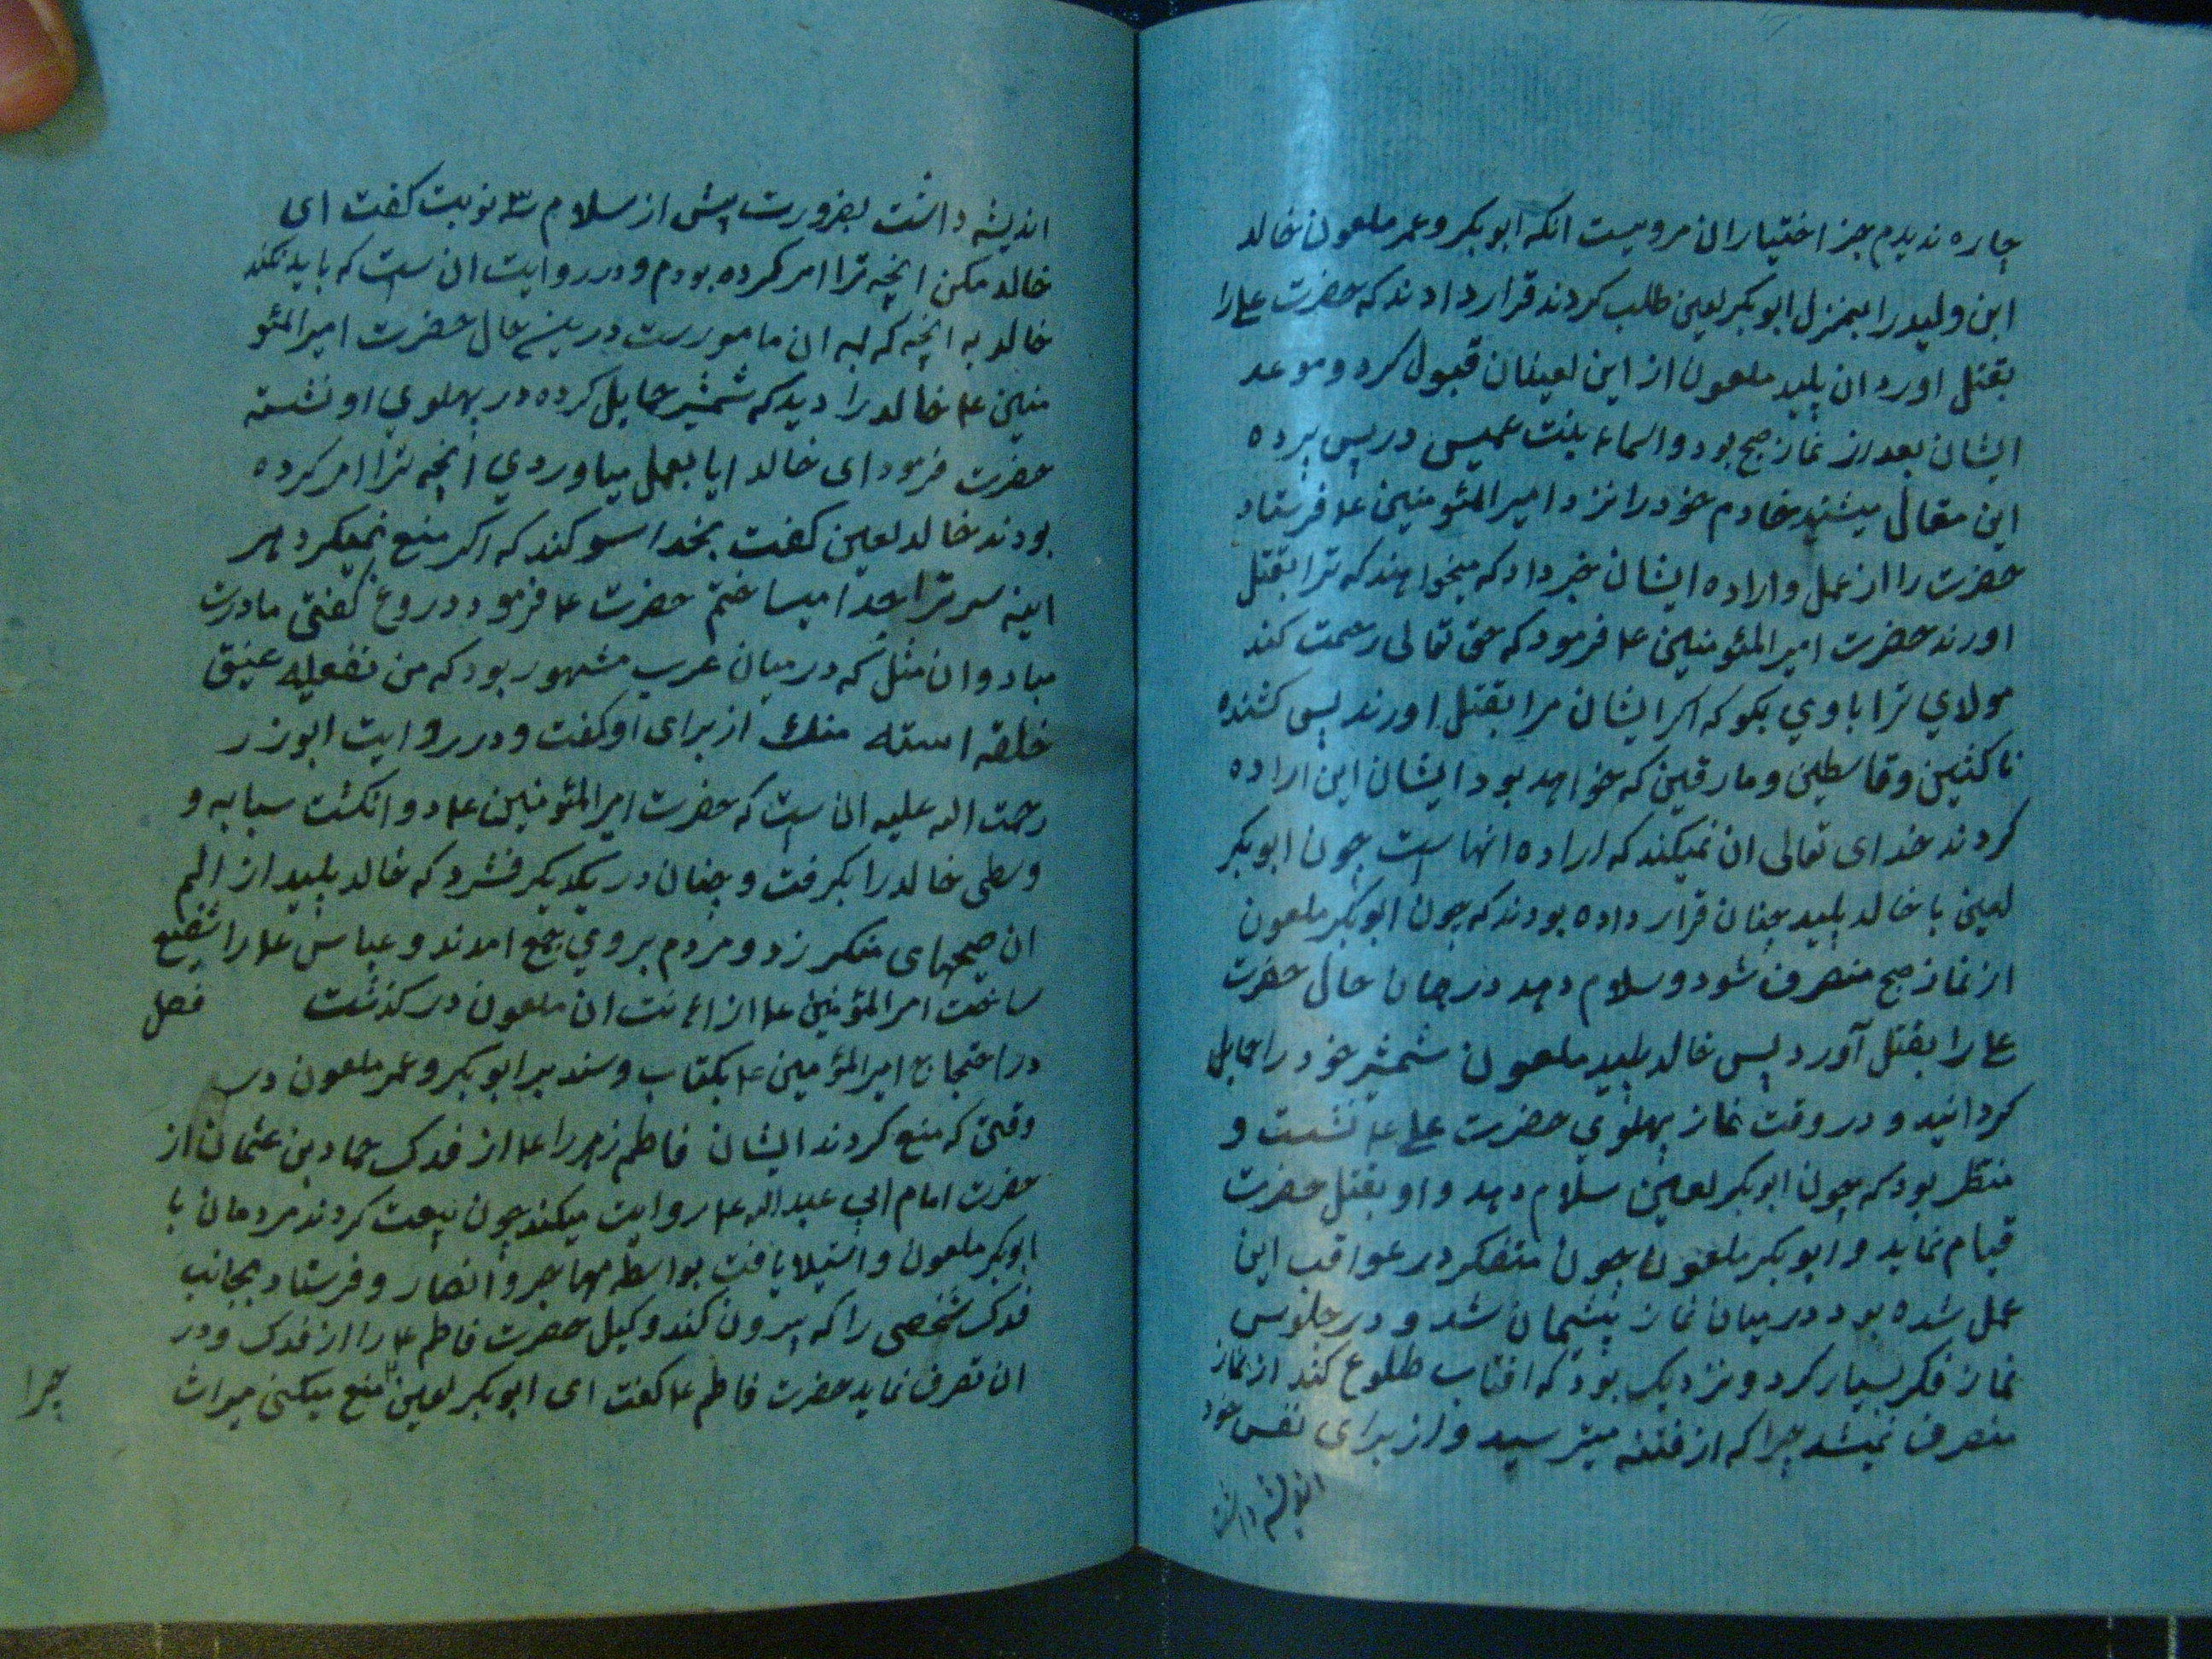 چاره ندیدم جز اختیار ان مرویست انکه ابوبکر و عمر ملعون خالد
ابن ولید را بمنزل ابوبکر لعین طلب کردند قرار دادند که حضرت علی را
بقتل اورد ان پلید ملعون از این لعینان قبول کرد و موعد
ایشان بعد از نماز صبح بود و اسماء بنت عمیس در پس پرده
این مقال میشنید خادم خود را نزد امیر المئومنین ع فرستاد
حضرت را از عمل و اراده ایشان خبر داد که میخواهند که ترا بقتل
اورند حضرت امیر المئومنین ع فرمود که حق تعالی رحمت کند
مولای ترا باوی بکو که اکر ایشان مرا بقتل اورند پس کشنده
ناکثین و قاسطین و مارقین که خواهد بود ایشان این اراده
کردند خدای تعالی ان نمیکند که اراده انهاست چون ابوبکر
لعین با خالد پلید چنان قرار داده بودند که چون ابوبکر ملعون
از نماز صبح منصرف شود و سلام دهد در همان حال حضرت
علی را بقتل آورد پس خالد پلید ملعون شمشیر خود را حمایل
کردانید و در وقت نماز پهلوی حضرت علی ع نشست و
منتظر بود که چون ابوبکر لعین سلام دهد و او بقتل حضرت
قیام نماید و ابوبکر ملعون چون متفکر در عواقب این
عمل شده بود در میان نماز پشیمان شد و در جلوس
نماز فکر بسیار کرد و نزدیک بود که افتاب طلوع کند از نماز
منصرف نمیشد چرا که از فتنه میترسید و از برای نفس خود
اندیشه داشت
اندیشه داشت بضرورت پیش از سلام سه نوبت کفت ای
خالد مکن انچه ترا امر کرده بودم و در روایت ان ست که باید نکند
خالد به انچه که به ان مامورست درین حال حضرت امیر المئو
منین ع خالد را دید که شمشیر حمایل کرده در پهلوی او نشسته
حضرت فرمود ای خالد ایا بعمل میاوردی انچه ترا امر کرده
بودند خالد لعین کفت بخدا سوکند که اکر منع نمیکرد هر
اینه سر ترا جدا میساختم حضرت ع فرمود دروغ کفتی مادرت
مباد و ان مثل که در میان عرب مشهور بود که من تفعیله عنیق
خلقه استه منك از برای او کفت و در روایت ابوزر
رحمت اله علیه ان ست که حضرت امیر المئومنین ع دو انکشت سبابه و
وسطی خالد را بکرفت و چنان در یکدیکر فشرد که خالد پلید از الم
ان صیحهای منکر زد و مردم بروی جمع امدند و عباس ع را شفیع
ساخت امیر المؤمنین ع از ان ملعون در کذشت فصل
در احتجاج امیر المؤمنین ع بکتاب و سند بر ابوبکر و عمر ملعون در
وقتی که منع کردند ایشان فاطم زهرا را ع از فدک حماد بن عثمان از
حضرت امام ابی عبد اله ع روایت میکند چون بیعت کردند مردمان با
ابوبکر ملعون و استیلا یافت بواسطه مهاجر و انصار و فرستاد بجانب
فدک شخصی را که بیرون کند وکیل حضرت فاطم ع را از فدک و در
ان تصرف نماید حضرت فاطم ع کفت ای ابوبکر لعین منع میکنی میراث
چرا